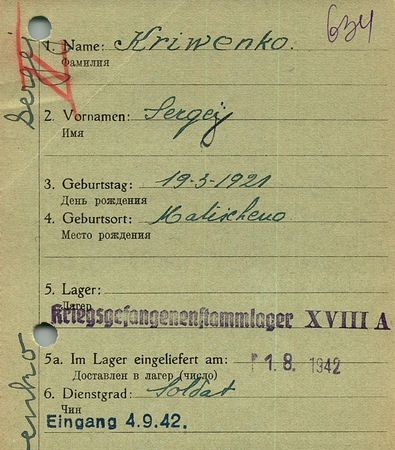 634
1. Name: Kriwenko.
Фамилия
Sergej
2. Vornamen: Sergej
Имя
3. Geburtstag: 19-3-1921
День рождения
4. Geburtsort: Matischeno
Место рождения
5. Lager:
Лагерь
Kriegsgefangenenstammlager XVIII A
5a. Im Lager eingeliefert am: 1. 8. 1942
Доставлен в лагерь (число)
6. Dienstgrad: Soldat
Чин
Eingang 4.9.42.
enko